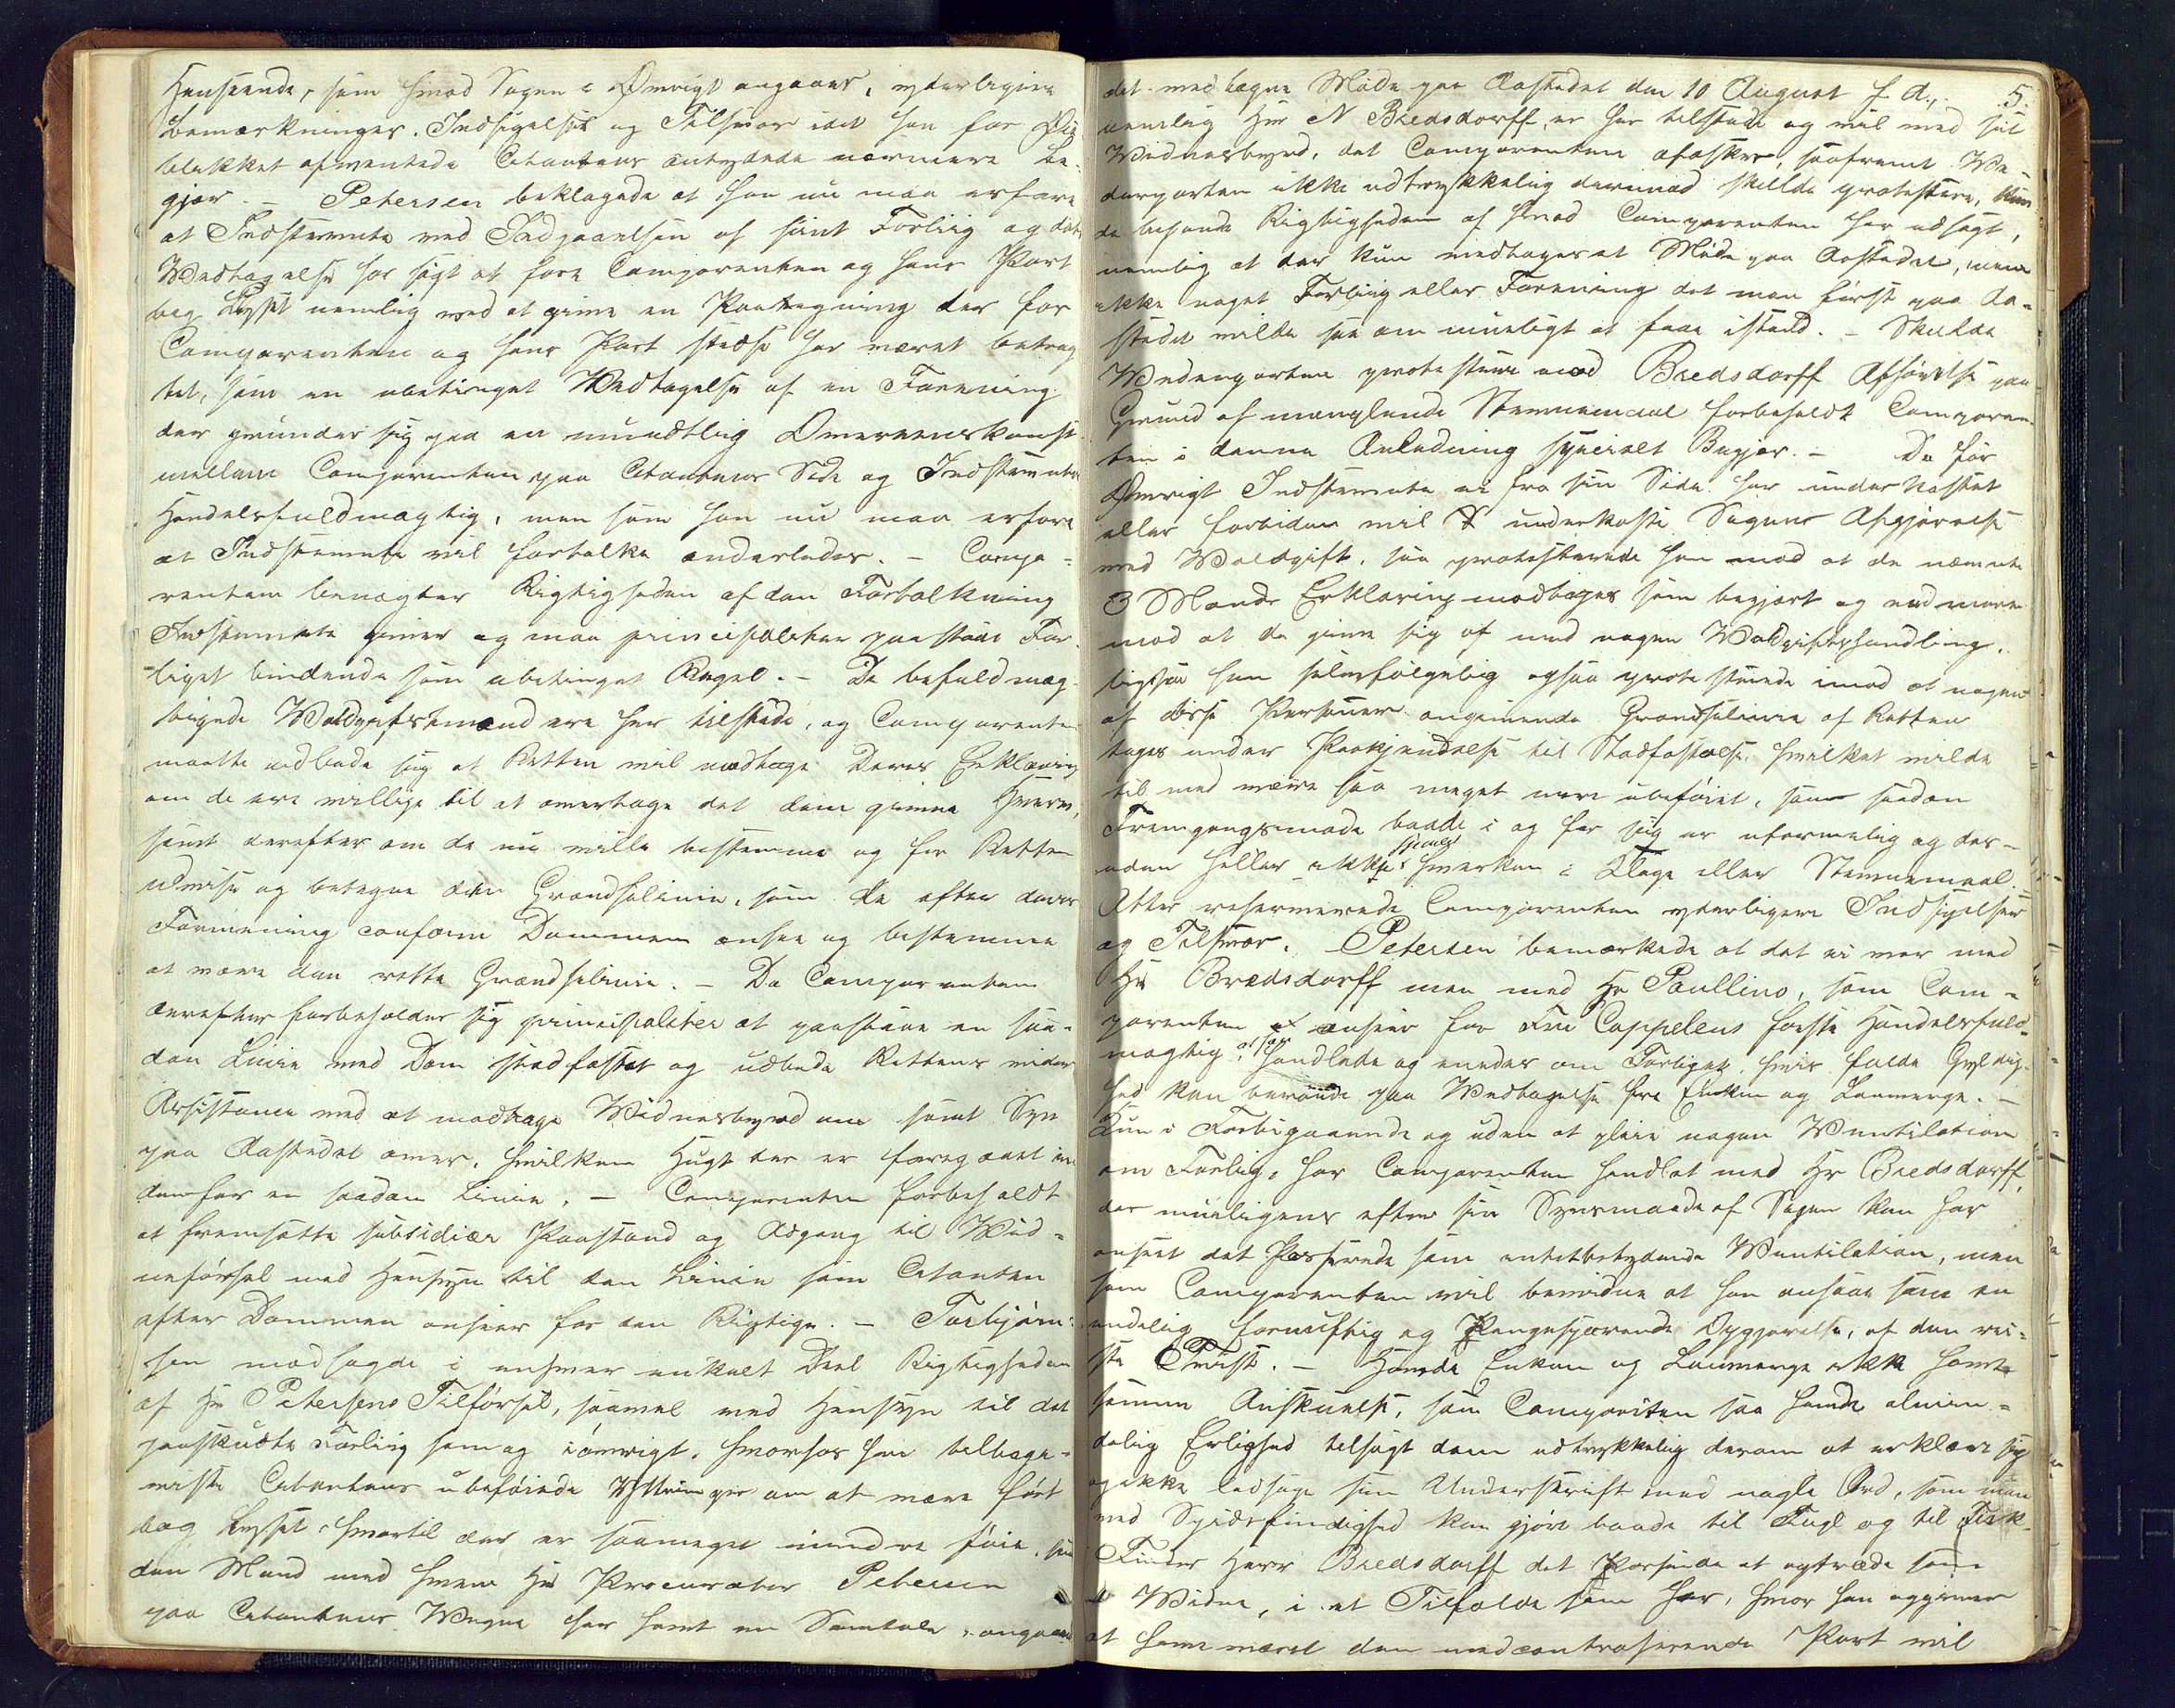 Henseende, som hvad Sagen i Øvrigt angaaer, yderligere
Bemærkninger, Indsigelser og Tilsvar idet han for Øie-
blikket afventede Citantens antydede nærmere Be-
gjær. – Petersen beklagede at han nu maa erfare
at Indstevnte ved Indgaaelsen af sint Forliig og dets
Vedtagelse har søgt at føre Comparenten og hans Part
bag Lyset nemlig ved at give en Paategning der for
Comparenten og hans Part stedse har været betrag
tet, som en ubetinget Vedtagelse af en Forening
der grunder sig paa en mundtlig Overeenskomst
mellem Comparenten paa Citantens Side og Indstevntes
Handelsfuldmægtig, men som han nu maa erfare
at Indstevnte vil fortolke anderledes. – Compa-
renten benægter Rigtigheden af den Fortolkning
Indstevnte giver og maa principaliter paastaae For-
liget bindende som ubetinget Regel. – De befuldmæg-
tigede Voldgiftsmænd ere her tilstede, og Comparenten
maatte udbede sig at Retten vil modtage Deres Erklæring
om de ere villige til at overtage det dem givne Hverv,
samt derefter om de nu ville bestemme og for Retten
udvise og betegne den Grændselinie, som de efter deres
Formening conform Dommen ansee og bestemme
at være den rette Grændselinie. – Da Comparenten
derefter forbeholder sig principaliter at paastaae en saa-
dan Linie ved Dom stadfæstet og udbede Rettens videre
Assistance med at modtage Vidnesbyrd om samt Syn
paa Aastedet over, hvilken Hugst der er foregaaet in
denfor en saadan Linie. – Comparenten forbeholdt
at fremsætte subsidiær Paastand og Adgang til Vid-
neførsel med Hensyn til den Linie som Citanten
efter Dommen anseer for den Rigtige. – Torbjørn-
sen modsagde i enhver enkelt Deel Rigtigheden
af Hr Petersens Tilførsel, saavel med Hensyn til det
paaskudte Forliig som og iøvrigt, hvorhos han tilbage-
viste Citantens ubeføiede Yttringer om at være ført
bag Lyset, hvortil der er saameget mindre føie, som
den Mand med hvem Hr Procurator Petersen
paa Citantens Vegne har havt en Samtale, angaaende
5.
det vedtagne Møde paa Aastedet den 10 August f. A.,
nemlig Hr N Bredsdorff, er her tilstede og vil med sit
Vidnesbyrd, det Comparenten afæsker, saafremt Ve-
derparten ikke udtrykkelig derimod skulde protestere, kun
de besande Rigtigheden af hvad Comparenten har udsagt,
nemlig at der kun vedtoges et Møde paa Aastedet, men
ikke noget Forliig eller Forening det man først paa Aa-
stedet vilde see om mueligt at faae istand. – Skulde
Vederparten protestere mod Bredsdorff Afhørelse paa
Grund af manglende Stevnemaal forbeholdt Comparen-
ten i denne Anledning specielt Begjær. – Da før
Øvrigt Indstevnte ei fra sin Side har underkastet
eller forbinder vil underkaste Sagens Afgjørelse
ved Voldgift, saa protesterede han mod at de nævnte
3 Mænds Erklæring modtoges som begjært og end mere
mod at de give sig af med nogen Voldgiftshandling,
ligesom han selvfølgelig ogsaa protesterede imod at nogen
af disse Personer angivende Grændselinie af Retten
tages under Paakjendelse til Stadfæstelse, hvilket vilde
til med være saa meget mere ubeføiet, som saadan
Fremgangsmaade baade i og for sig er uformelig og des-
uden heller ikke hjemlet hverken i Klage eller Stevnemaal.
Atter reserverede Comparenten yderligere Indsigelser
og Tilsvar. Petersen bemærkede at det ei var med
Hr Bredsdorff men med Hr Paulline, som Com-
parenten anseer for Fru Cappelens første Handelsfuld-
mægtig, at han handlede og enedes om Forliget, hvis fulde Gyldig-
hed kan beroende paa Vedtagelse fra Enken og Laugverge. –
Kun i Forbigaaende og uden at pleie nogen Ventilation
om Forliig, har Comparenten handlet med Hr Bredsdorff,
der mueligens efter sin Synsmaade af Sagen kan have
anseet det Passerede som intetbetydende Ventilation, men
som Comparenten vil bevidne at han ansaae som en
endelig fornuftig og Pengesparende Opgjørelse, af den vii-
ste Tvist. – Havde Enken og Laugverge ikke havt
samme Anskuelse, som Comparenten saa havde almin-
delig Erlighed tilsagt dem udtrykkelig derom at erklære sig
og ikke ledsage sin Underskrift med nogle Ord, som man
ved Spidsfindighed kan gjøre baade til Fugl og til Fisk.
Finder Herr Bredsdorff det Passende at optræde som
Vidne, i et Tilfælde som her, hvor han opgiver
at have været den medcontraherende Part vil